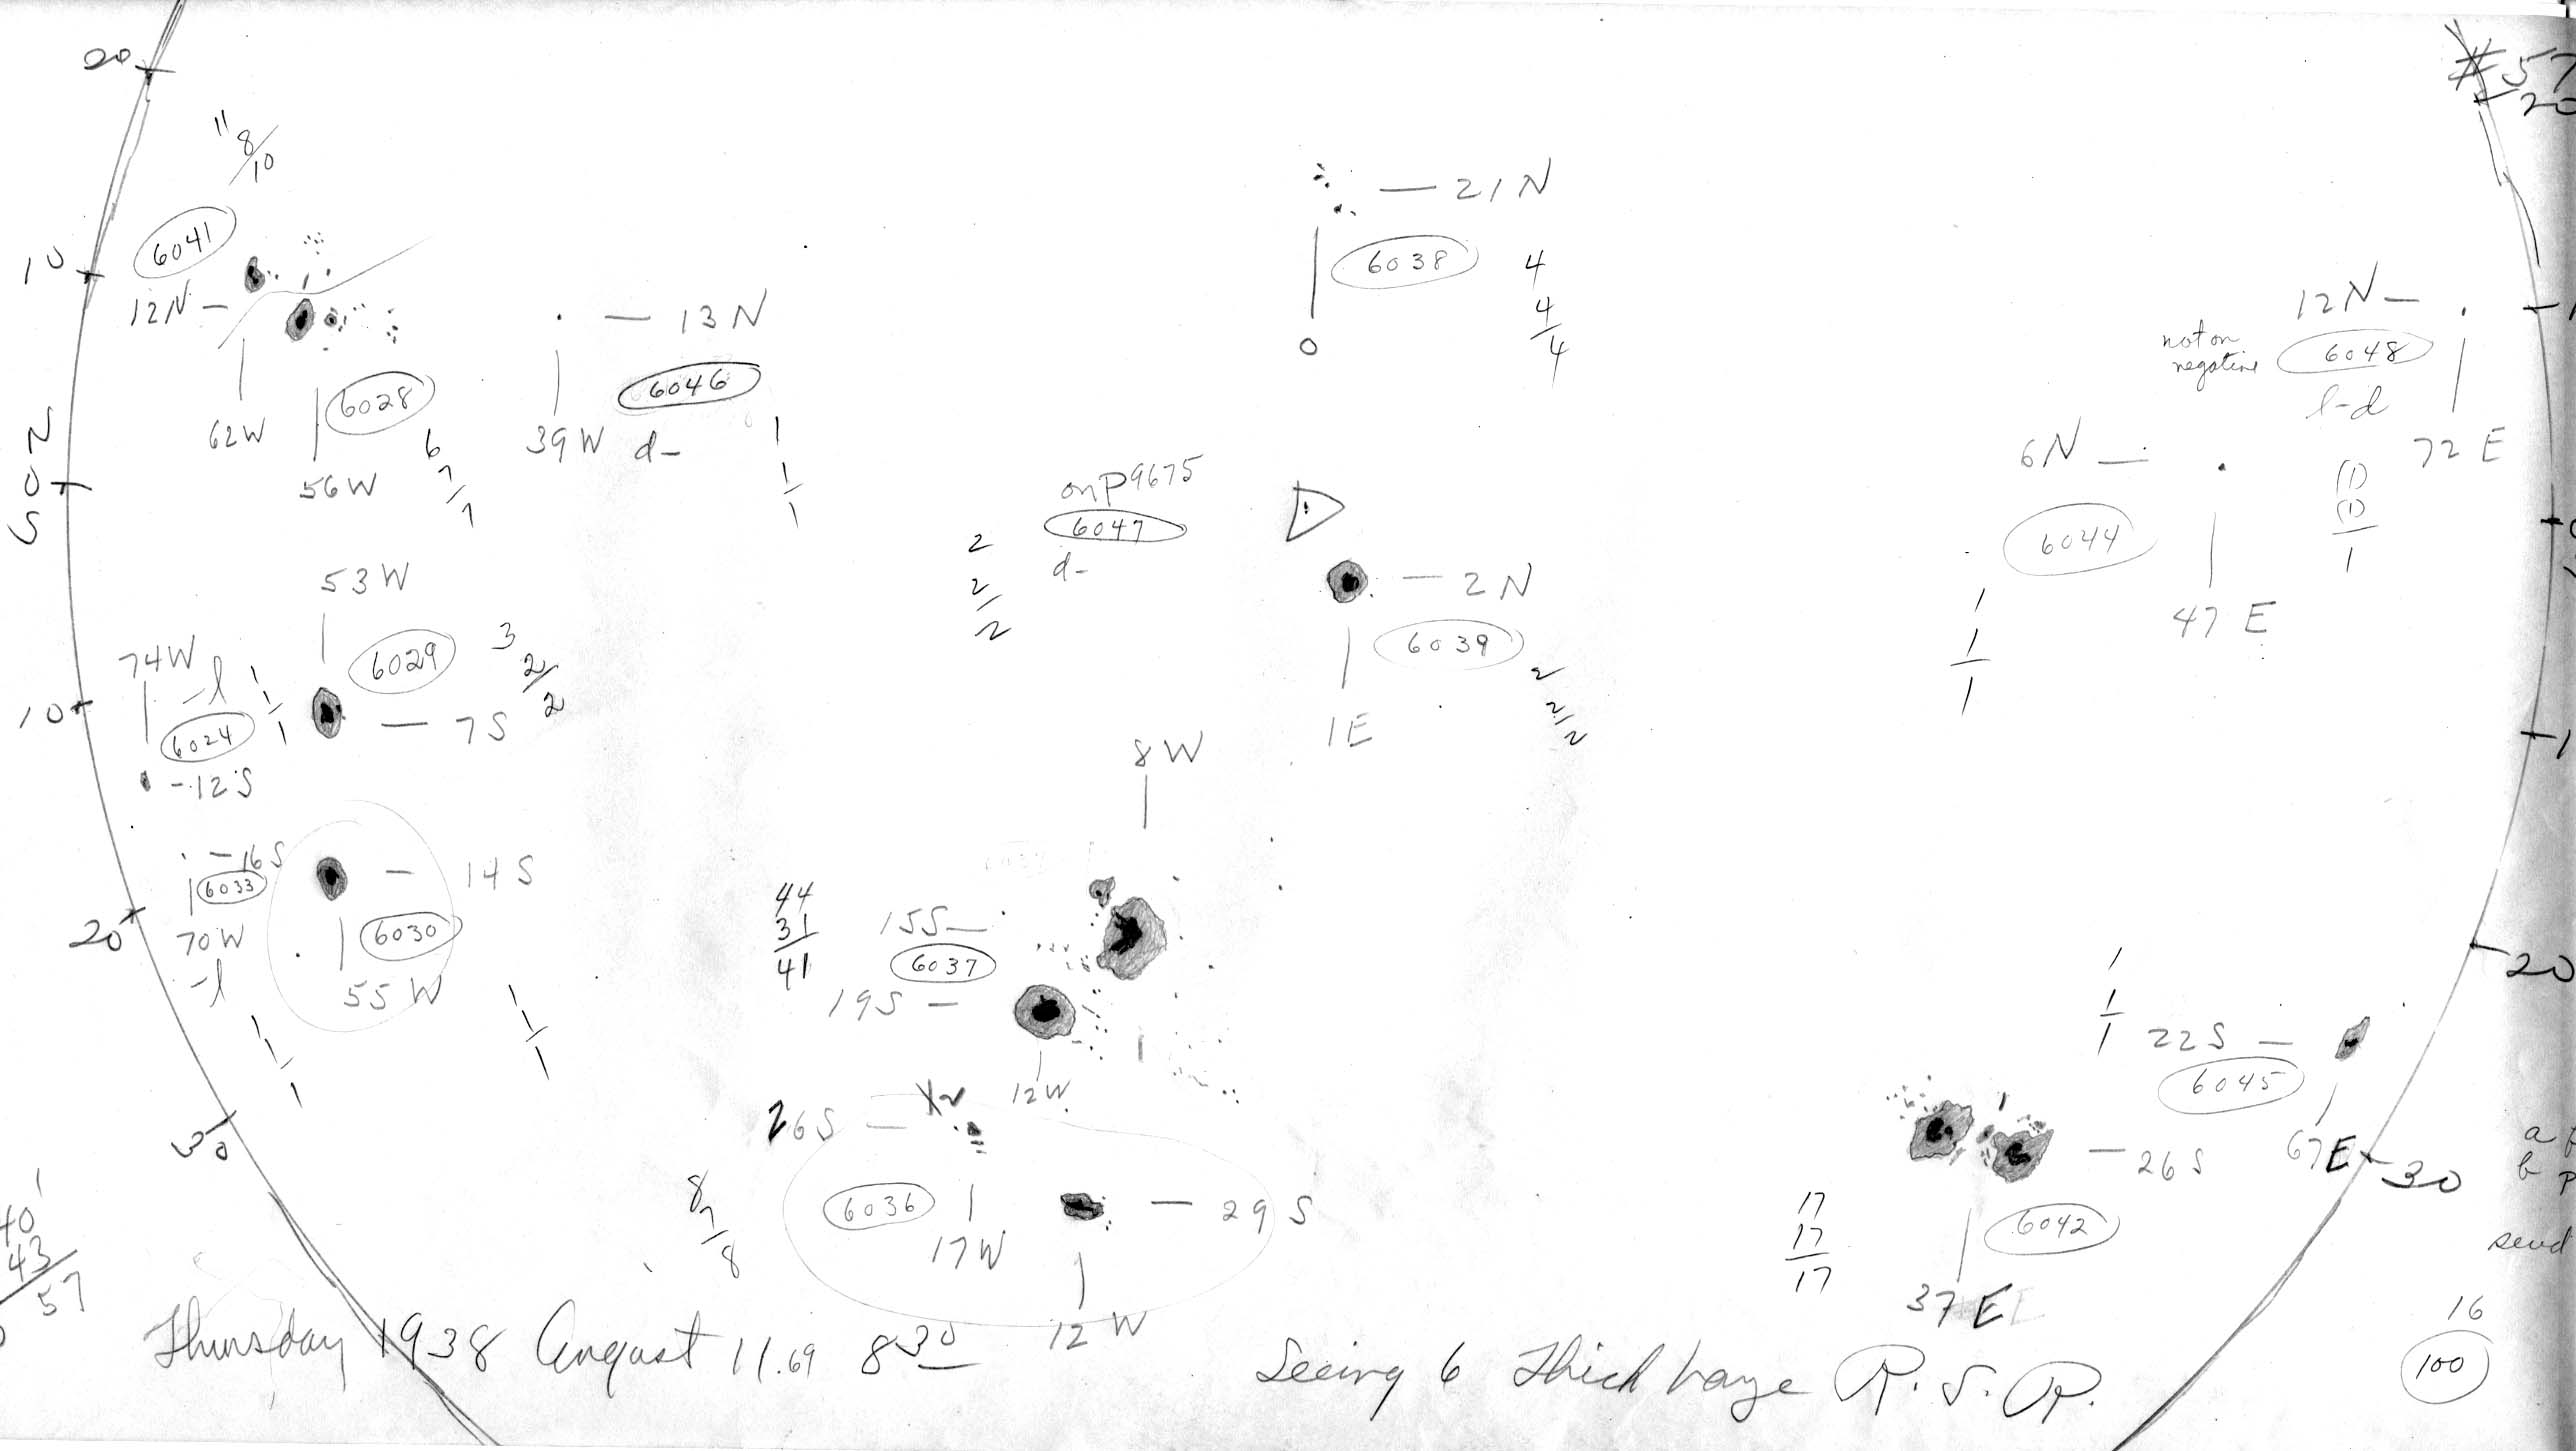 20
# 57
20
11 8/10
6041
12N –
62W
6028
56W
6
7
7
– 13N
6046
39W d–
1
1
1
– 21N
6038
0
4
4
4
12N –
not on
negative
6048
l–d
72 E
10
N
0
S
on P9675
6047
d–
2
2
2
– 2N
6039
1E
2
2
2
6N –
6044
47 E
(1)
(1)
1
1
1
1
53W
6029
3
2
2
– 7S
74W
–l
6024
–12S
1
1
1
10
–16S
6033
70W
–l
1
1
1
– 14S
6030
55W
1
1
1
20
8W
44
31
41
15S –
6037
19S –
12W
26S –
6036
17W
– 29S
12W
8
7
8
20
1
1
1
22S –
6045
67E
30
– 26S
6042
37 E
17
17
17
30
40
43
57
a
b p
send
16
100
Thursday 1938 August 11.69 8 30 Seeing 6 Thick haze R. S. R.